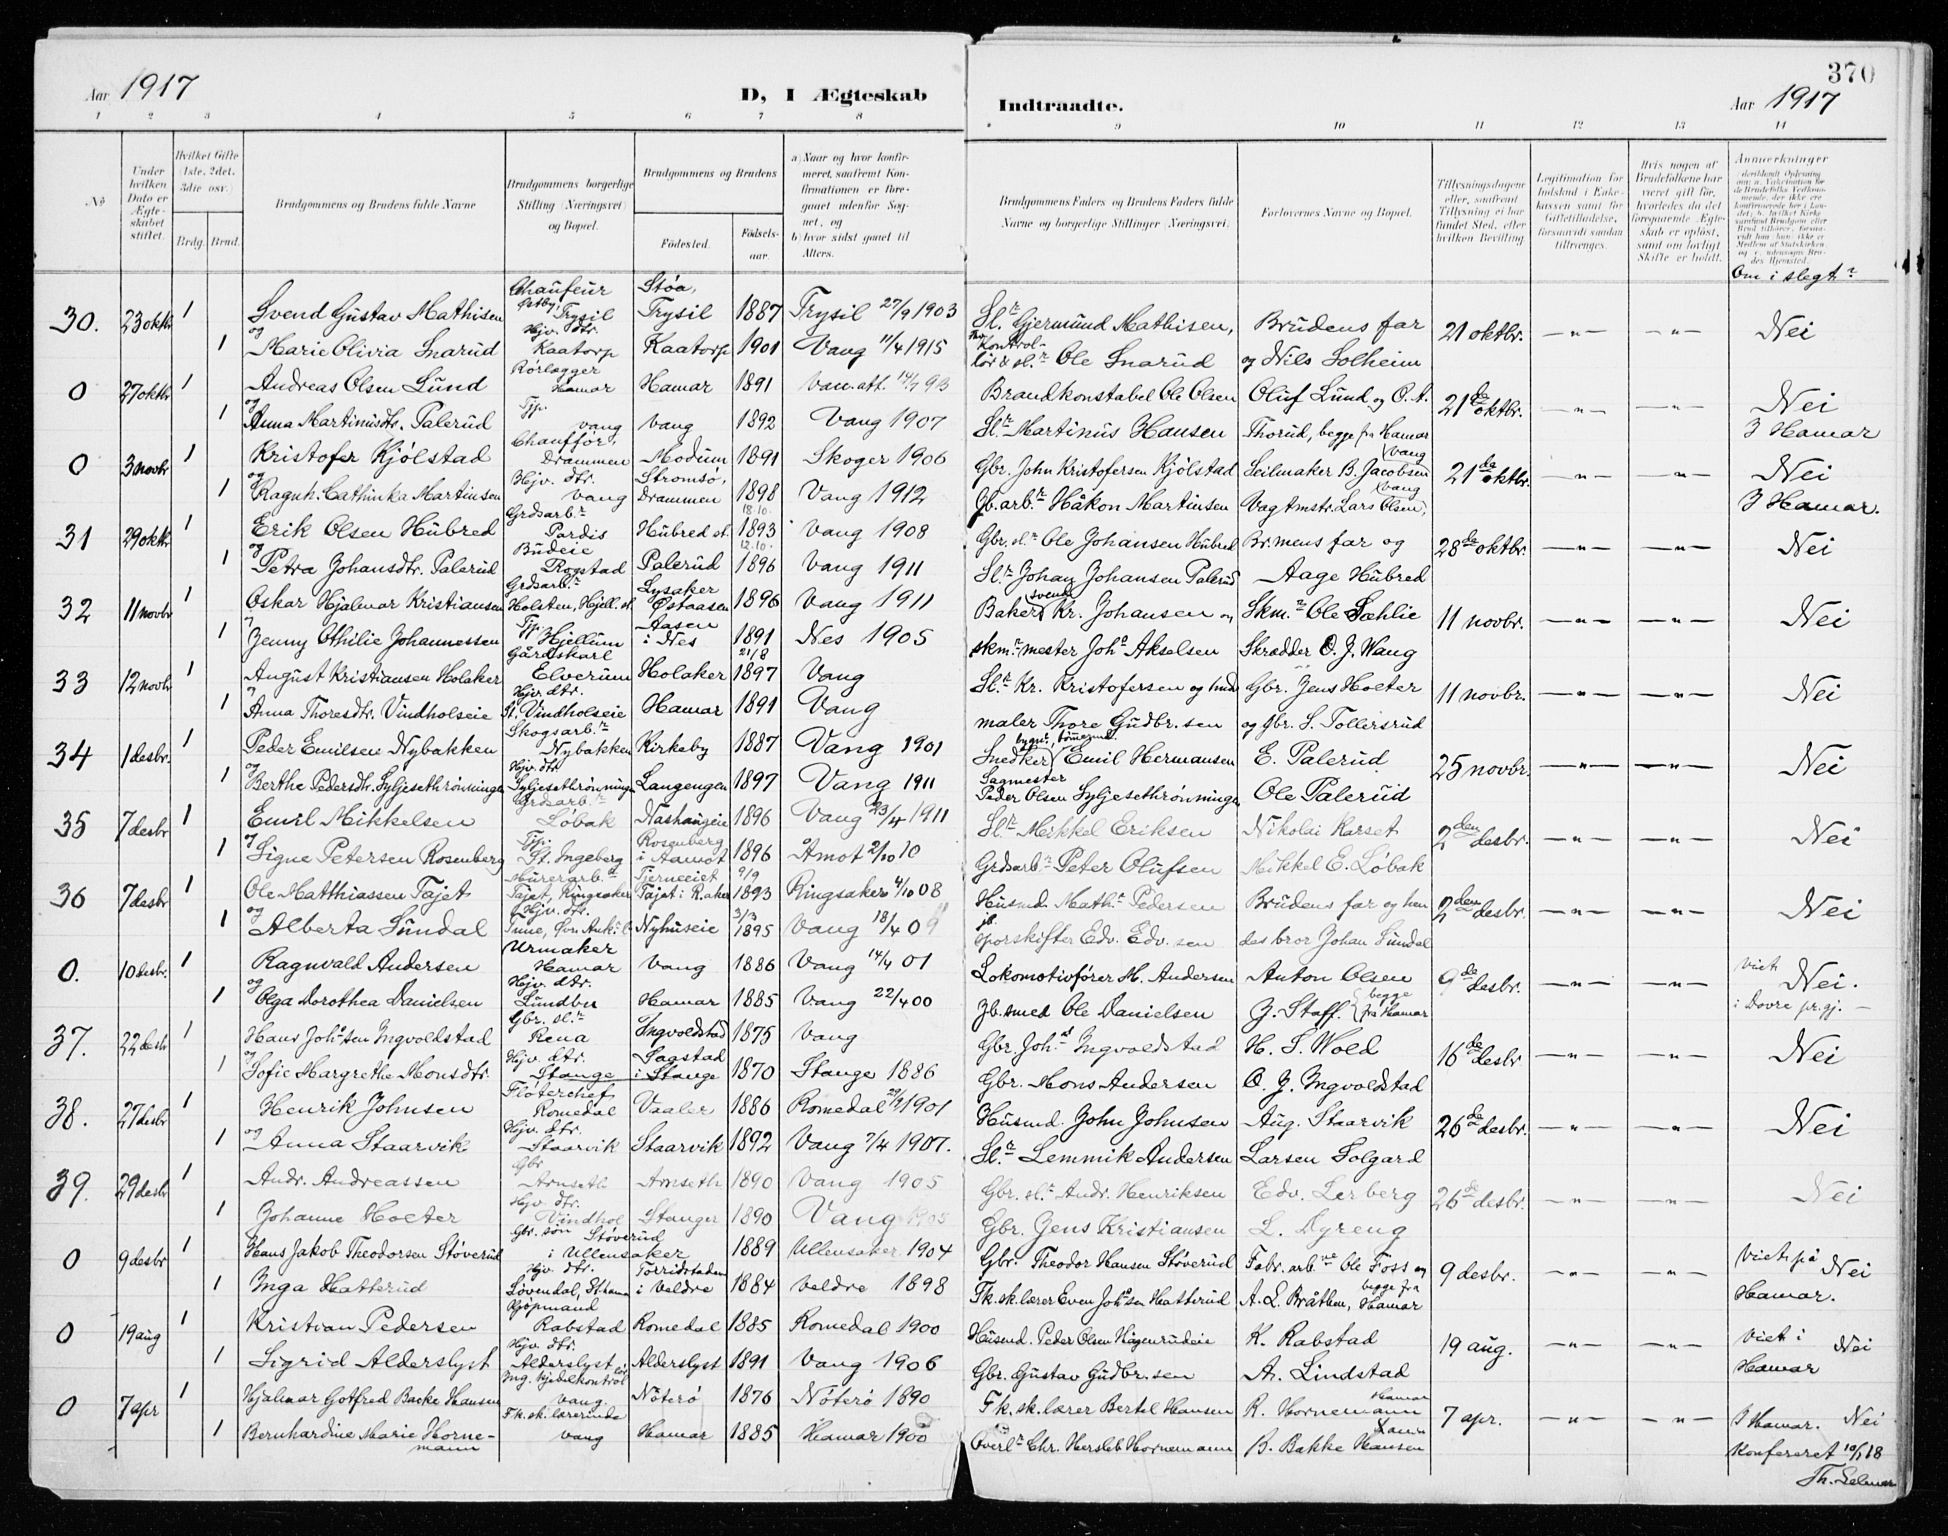 370
Aar 1917
D, I Ægteskab
Indtraadte.
Aar 1917
1 2 3 4 5 6 7 8 9 10 11 12 13 14
No
Under hvilken Dato er Ægteskabet stiftet.
Hvilket Gifte (1ste, 2det, 3die osv.)
Brdg. Brud.
Brudgommens og Brudens fulde Navne
Brudgommens borgerlige Stilling (Næringsvei) og Bopæl.
Brudgommens og Brudens
Fødested.
Fødselsaar.
a) Naar og hvor konfirmeret, saafremt Konfirmationen er foregaaet udenfor Sognet, og
b) hvor sidst gaaet til Alters.
Brudgommens Faders og Brudens Faders fulde Navne og borgerlige Stillinger (Næringsvei).
Forlovernes Navne og Bopæl.
Tillysningsdagene eller, saafremt Tillysning ei har fundet Sted, efter hvilken Bevilling.
Legitimation for Indskud i Enkekassen samt for Giftetilladelse, forsaavidt saadan tiltrænges.
Hvis nogen af Brudefolkene har været gift før, hvorledes da det foregaaende Ægteskab er opløst, samt om lovligt Skifte er holdt.
Anmerkninger
Om i slegt
30. 23 oktbr 1 Svend Gustav Mathisen Chaufeur Østby, Trysil Støa, Trysil 1887 Trysil 27/9 1903 Sl. Gjermund Mathisen, Brudens far 21 oktbr. —"— —"— Nei
og 1 Marie Olivia Snarud Hjv. dtr. Kaatorp Kaatorp 1901 Vang 11/4 1915 Kontrollør & sl. Ole Snarud og Nils Solheim
0 27 oktbr 1 Andreas Olsen Lund Rørlægger Hamar Hamar 1891 Brandkonstabel Ole Olsen Oluf Lund og O. A. 21de oktbr. —"— —"— Nei
og 1 Anna Martinusdtr. Palerud Tjp. Vang Vang 1892 Vang 1907 Sl. Martinus Hansen Thorud, begge fra Hamar I Hamar
0 3 novbr 1 Kristofer Kjølstad Chauffør, Drammen Modum 1891 Skoger 1906 Gbr. John Kristofersen Kjølstad Seilmaker B. Jacobsen Vang 21de oktbr. —"— —"— Nei
og 1 Ragnh. Cathinka Martinsen Hjv. dtr. Vang Strømsø, Drammen 1898 Vang 1912 Jb. arb. Håkon Martinsen Vagtmstr. Lars Olsen, Vang I Hamar.
31 29 oktbr 1 Erik Olsen Hubred Grdsarb. Pardis Hubred st. 18.10. 1893 Vang 1908 Gbr. sl. Ole Johansen Hubred Br. mens far og 28de oktbr. —"— —"— Nei
og 1 Petra Johansdtr. Palerud Budeie Rogstad Palerud 12.10. 1896 Vang 1911 Sl. Johan Johansen Palerud Aage Hubred
32 11 novbr 1 Oskar Hjalmar Kristiansen Grdsarb. Holsten, Hjell. st. Lysaker Østaasen 1896 Vang 1911 Bakersvend Kr. Johansen og Skm. Ole Sæhlie 11 novbr. —"— —"— Nei
1 Jenny Othilie Johannessen Tjp. Hjellum Aasen i Nes 1891 Nes 1905 skm. mester Joh. Akselsen Skrædder O. J. Wang
33 12 novbr 1 August Kristiansen Holaker Gårdskarl Elverum Holaker 21/8 1897 Vang Sl. Kr. Kristofersen og Gbr. Jens Hoeter 11 novbr. —"— —"— Nei
1 Anna Thoresdtr. Vindholseie Hjv. dtr. Vindholseie Hamar 1891 Vang maler Thore Gudbr.sen og Gbr. S. Tollersrud
34 1 desbr. 1 Peder Emilsen Nybakken Skogsarb. Nybakken Kirkeby 1887 Vang 1901 Snedker Emil Hermansen E. Palerud 25 novbr. —"— —"— Nei
og 1 Berthe Pedersdtr. Syljesethrønningen Hjv. dtr. Syljesethrønningen Langengen 1897 Vang 1911 Sagmester Peder Olsen Syljesethrønningen Ole Palerud
35 7 desbr 1 Emil Mikkelsen Grdsarb. Løbak Nashaugeie 1896 Vang 23/4 1911 Sl. Mikkel Eriksen Nikolai Karset 2den desbr. —"— —"— Nei
og 1 Signe Petersen Rosenberg Tjp. St. Ingeberg Rosenberg i Aamot 1896 Åmot 2/10 10 Grdsarb. Peter Olufsen Mikkel E. Løbak
36 7 desbr 1 Ole Matthiassen Tajet Murerarb. Tajet, Ringsaker Tjerneeiet Tajet i R.aker 9/9 1893 Ringsaker 4/10 08 Husmd. Math. Pedersen Brudens far og hen 2den desbr. —"— —"— Nei
og 1 Alberta Sundal Hjv. dtr. Nyhuseie 3/3 1895 Vang 18/4 09 jb. sporskifter Edv. Edv.sen des bror Johan Sundal
0. 10 desbr. 1 Ragnvald Andersen Urmaker Hamar Vang 1886 Vang 14/4 01 Lokomotivfører H. Andersen Anton Olsen 9de desbr. —"— —"— Viet Nei.
og 1 Olga Dorothea Danielsen Hjv. dtr. Lundbu Hamar 1885 Vang 22/4 00 Jb. smed Ole Danielsen J. Staff. begge fra Hamar i Dovre pr.gj. —
37. 22 desbr 1 Hans Joh.sen Ingvoldstad Gbr. sl. Rena Ingvoldstad 1875 Vang Gbr. Joh. Ingvoldstad H. S. Wold 16de desbr —"— —"— Nei
og 1 Sofie Margrethe Monsdtr. Hjv. dtr. Stange Sagstad i Stange 1870 Stange 1886 Gbr. Mons Andersen O. J. Ingvoldstad
38. 27 desbr 1 Henrik Johnsen Fløterchef Romedal Vaaler 1886 Romedal 1901 Husmd. John Johnsen Aug. Staarvik 26de desbr. —"— —"— Nei
og 1 Anna Staarvik Hjv. dtr. Staarvik Staarvik 1892 Vang 7/4 1907. Sl. Lemmik Andersen Larsen Solgard
39. 29 desbr 1 Andr. Andreassen Gbr Arnseth Arnseth 1890 Vang 1905 Gbr. sl. Andr. Henriksen Edv. Lerberg 26de desbr. —"— —"— Nei
1 Johanne Hoeter Hjv. dtr. Vindhol Stange 1890 Vang 1905 Gbr. Jens Kristiansen L. Dyreng
0 9 desbr 1 Hans Jakob Theodorsen Støverud Gbr. søn Støverud i Ullensaker 1889 Ullensaker 1904 Gbr. Theodor Hansen Støverud Fabr. arb. Ole Foss og 9 desbr. —"— —"— Viet på Nei
1 Inga Hatterud Hjv. dtr. Løvendal, Torridstaden i Veldre 1884 Veldre 1898 Fk. sk. lærer Even Joh.sen Hatterud A. L. Bråthen, begge fra Hamar Hamar.
0 19 aug 1 Kristian Pedersen Kjøpmand Rabstad Romedal 1885 Romedal 1900 Husmd. Peder Olsen Hågenrudeie K. Rabstad 19 aug. —"— —"— Viet i Nei
1 Sigrid Alderslyst Hjv. dtr. Alderslyst Alderslyst 1891 Vang 1906 Gbr. Gustav Gudbr.sen A. Lindstad Hamar
0 7 apr 1 Hjalmar Gotfred Backe Hansen Ing. kjedelkontrol Vang. Nøterø 1876 Nøterø 1890 Fk. sk. lærer Bertel Hansen R. Hornemann Hamar 7 apr. —"— —"— I Hamar. Nei
1 Bernhardine Marie Hornemann Fk. sk. lærerinde Vang Hamar 1885 Hamar 1900 Overl. Chr. Hersleb Hornemann B. Bakke Hansen
Konfereret 10/1 18
Th. Selmer